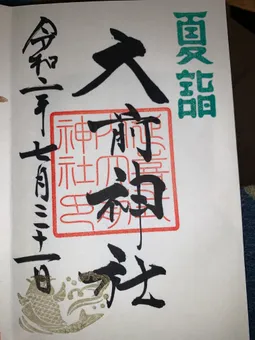 夏詣
大前神社
令和二年七月三十一日